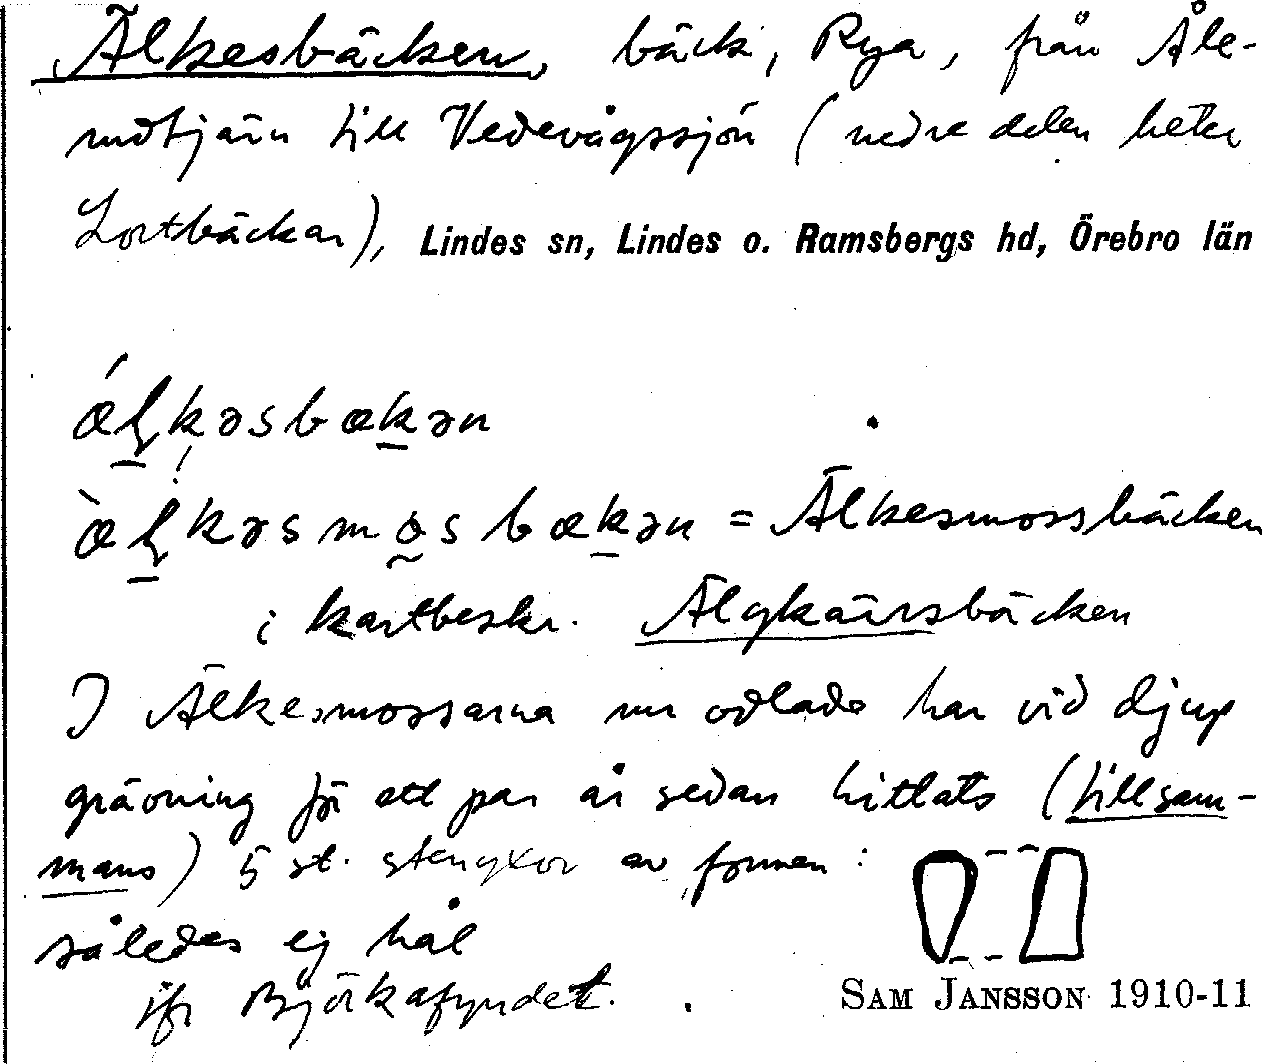 Älkesbäcken, bäck, Rya, från Åle-
mdtjärn till Vedevågssjön (nedre delen heter
Lortbäcken), Lindes sn, Lindes o. Ramsbergs hd, Örebro län
ǽl̥kəsbækən
æ̀l̥kəsmosbækən = Älkesmossbäcken
i kartbeskr. Älgkärrsbäcken
I Älkesmossarna nu odlade har vid djup
grävning för ett par år sedan hittats (tillsam-
mans) 5 st. stenyxor av formen:
således ej hål
jfr Björkafyndet.
SAM JANSSON 1910-11